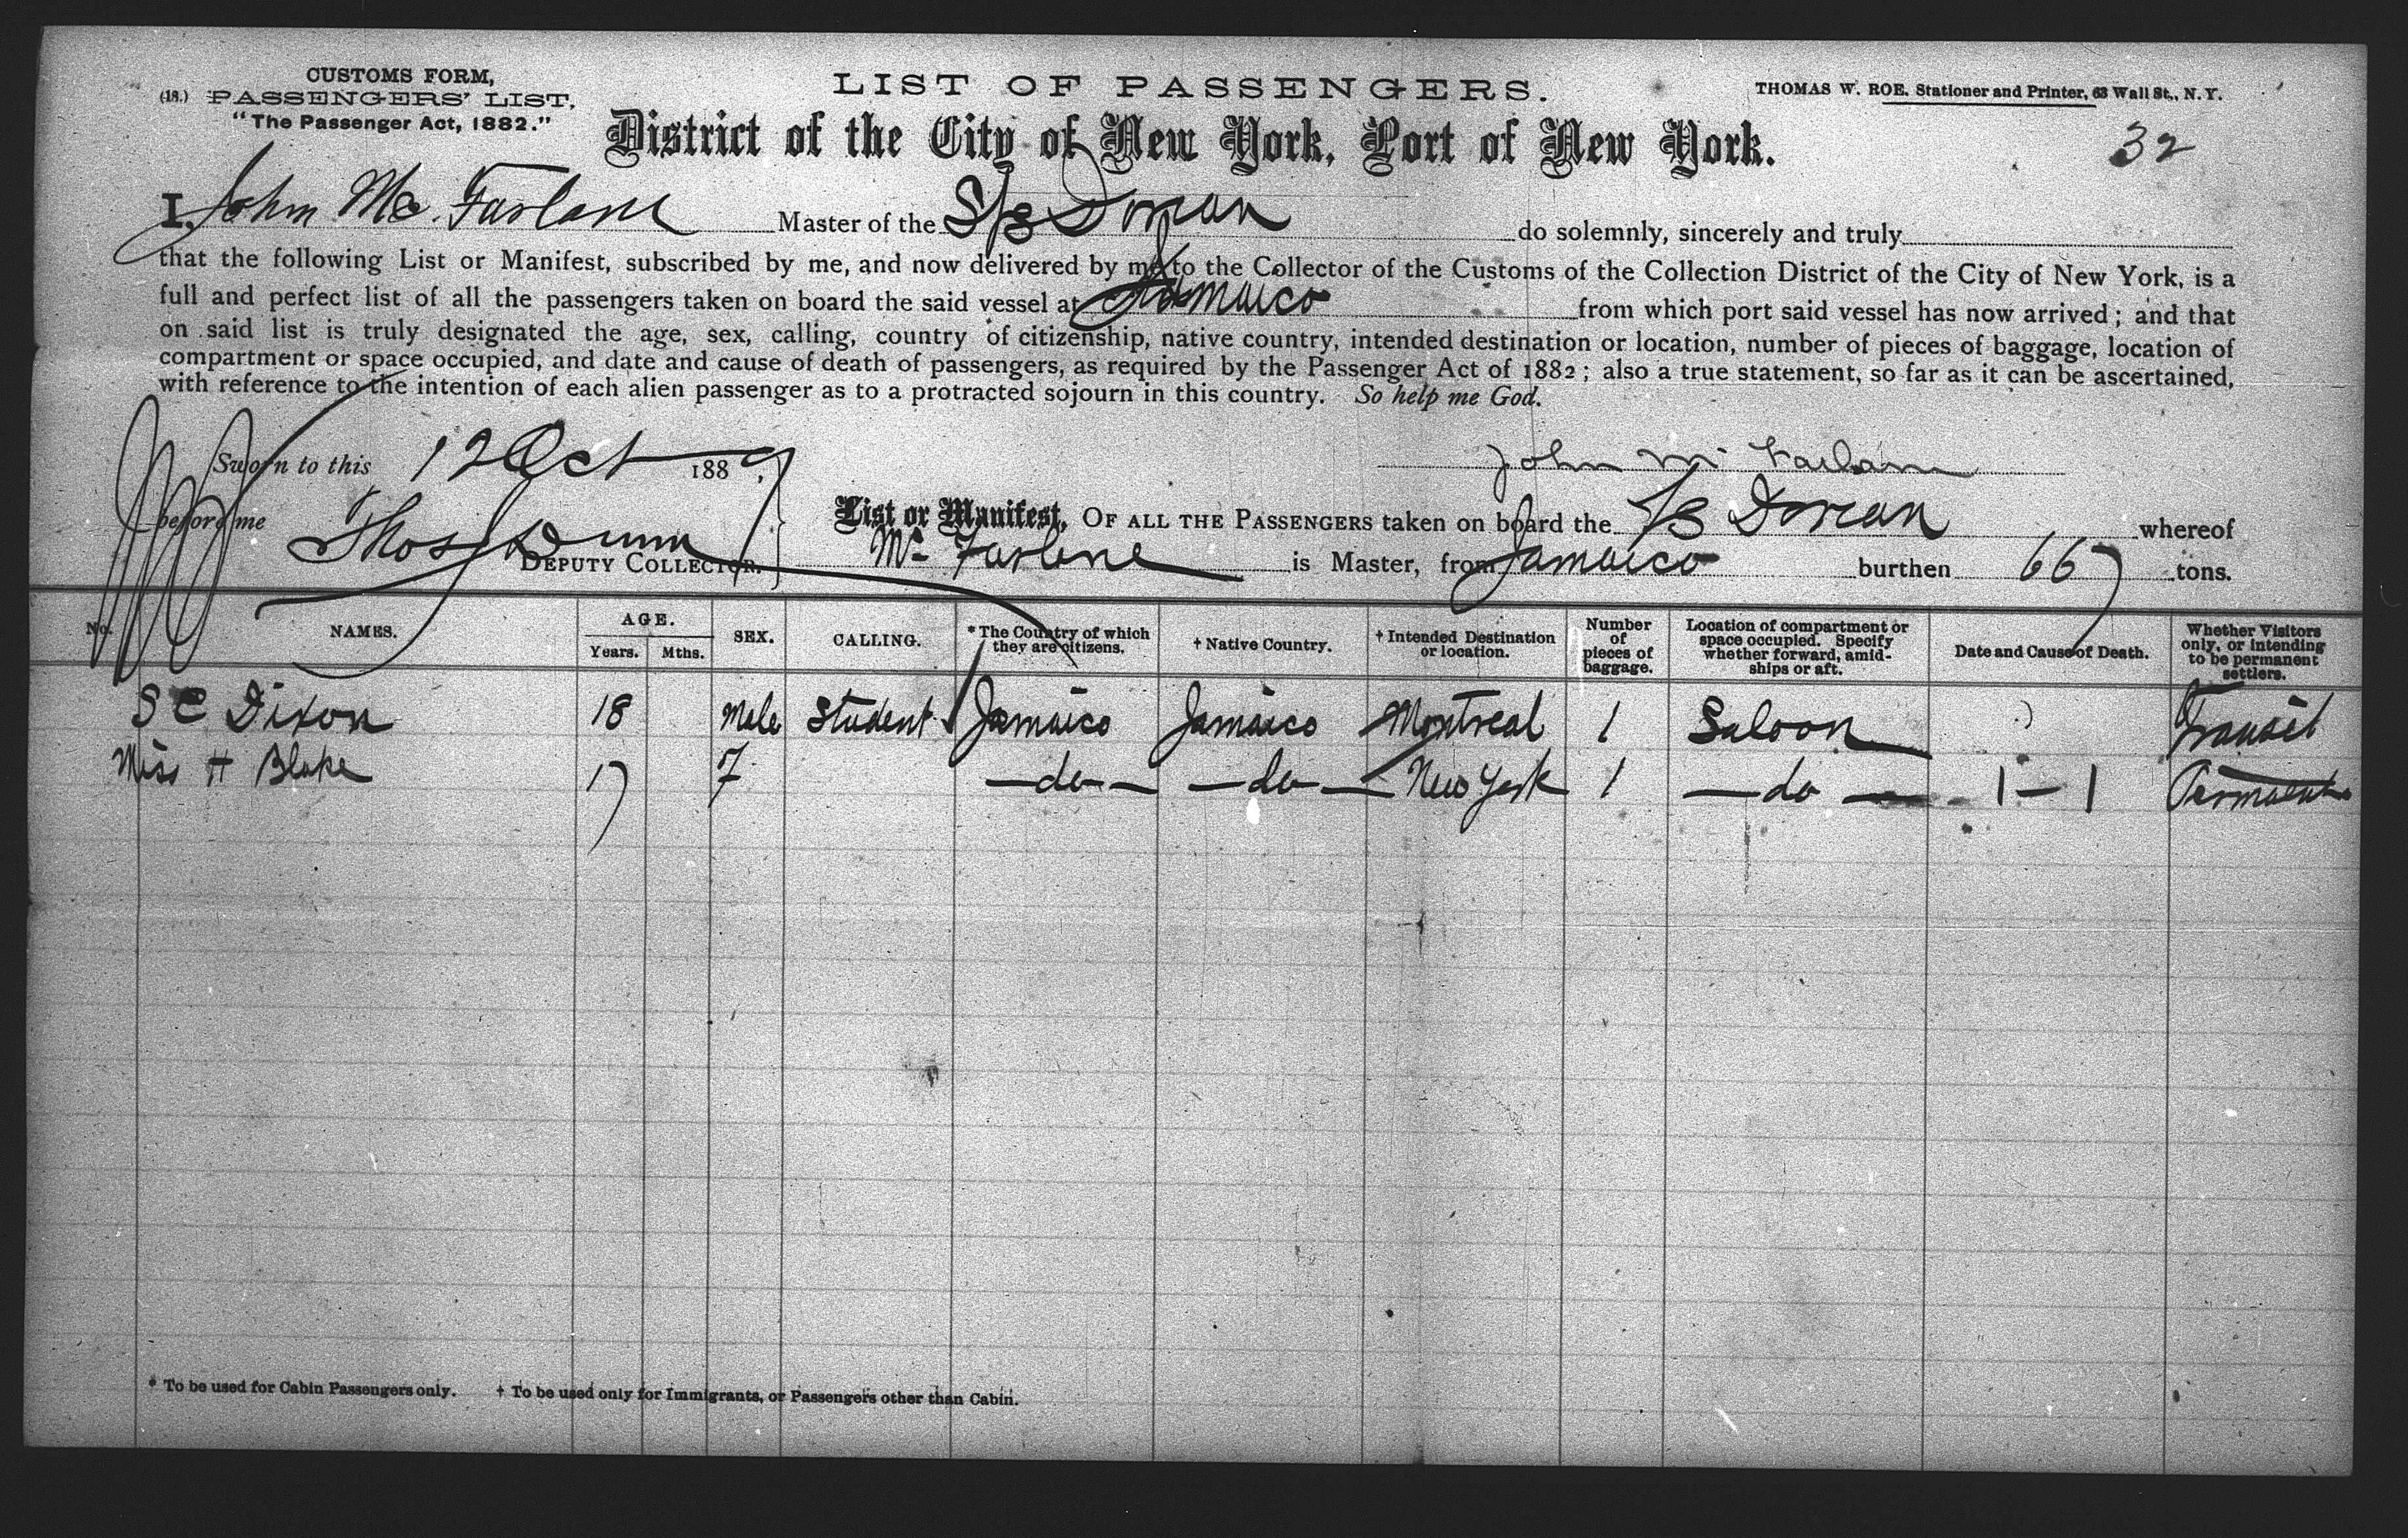 CUSTOMS FORM,
(18.) PASSENGERS' LIST,
"The Passenger Act, 1882."
LIST OF PASSENGERS.
THOMAS W. ROE. Stationer and Printer, 63 Wall St., N. Y.
District of the City of New York, Port of New York.
32
I, John Mc. Farlane Master of the S/S Dorian do solemnly, sincerely and truly
that the following List or Manifest, subscribed by me, and now delivered by me to the Collector of the Customs of the Collection District of the City of New York, is a
full and perfect list of all the passengers taken on board the said vessel at Jamaica from which port said vessel has now arrived; and that
on said list is truly designated the age, sex, calling, country of citizenship, native country, intended destination or location, number of pieces of baggage, location of
compartment or space occupied, and date and cause of death of passengers, as required by the Passenger Act of 1882; also a true statement, so far as it can be ascertained,
with reference to the intention of each alien passenger as to a protracted sojourn in this country. So help me God.
Sworn to this 12 Oct 1889,
John Mc Farlane
before me Thos Dunn
DEPUTY COLLECTOR.
List or Manifest, OF ALL THE PASSENGERS taken on board the S/S Dorian whereof
Mc Farlane is Master, from Jamaica burthen 667 tons.
No. NAMES. AGE. Years. Mths. SEX. CALLING. * The Country of which they are citizens. † Native Country. † Intended Destination or location. Number of pieces of baggage. Location of compartment or space occupied. Specify whether forward, amid-ships or aft. Date and Cause of Death. Whether Visitors only, or intending to be permanent settlers.
S C Dixon 18 Male Student Jamaica Jamaica Montreal 1 Saloon Transit
Miss H Blake 17 F —do— —do— New York 1 —do— 1—1 Permanent
* To be used for Cabin Passengers only. † To be used only for Immigrants, or Passengers other than Cabin.